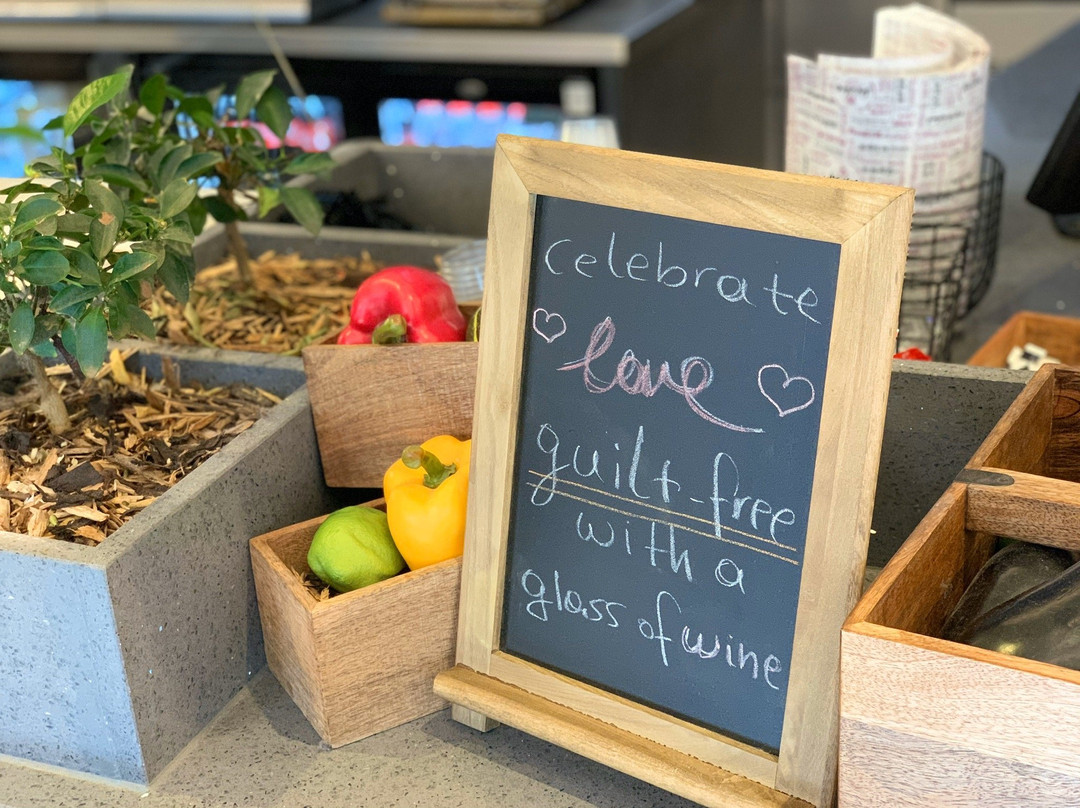 celebrate
love
guilt-free
with a
glass of wine